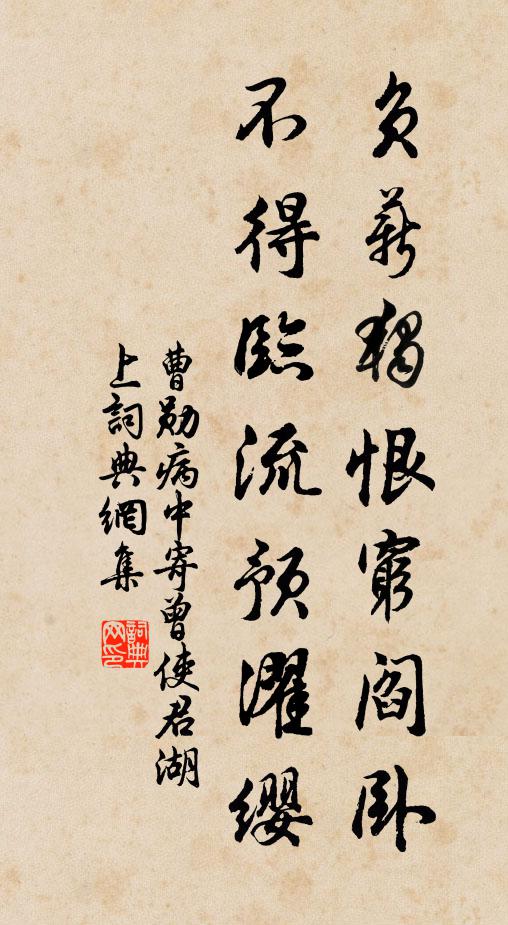 负薪独恨穷阎卧
不得臨流預濯纓
曹勛病中寄曾使君湖
上詞典網集
詞典
网印